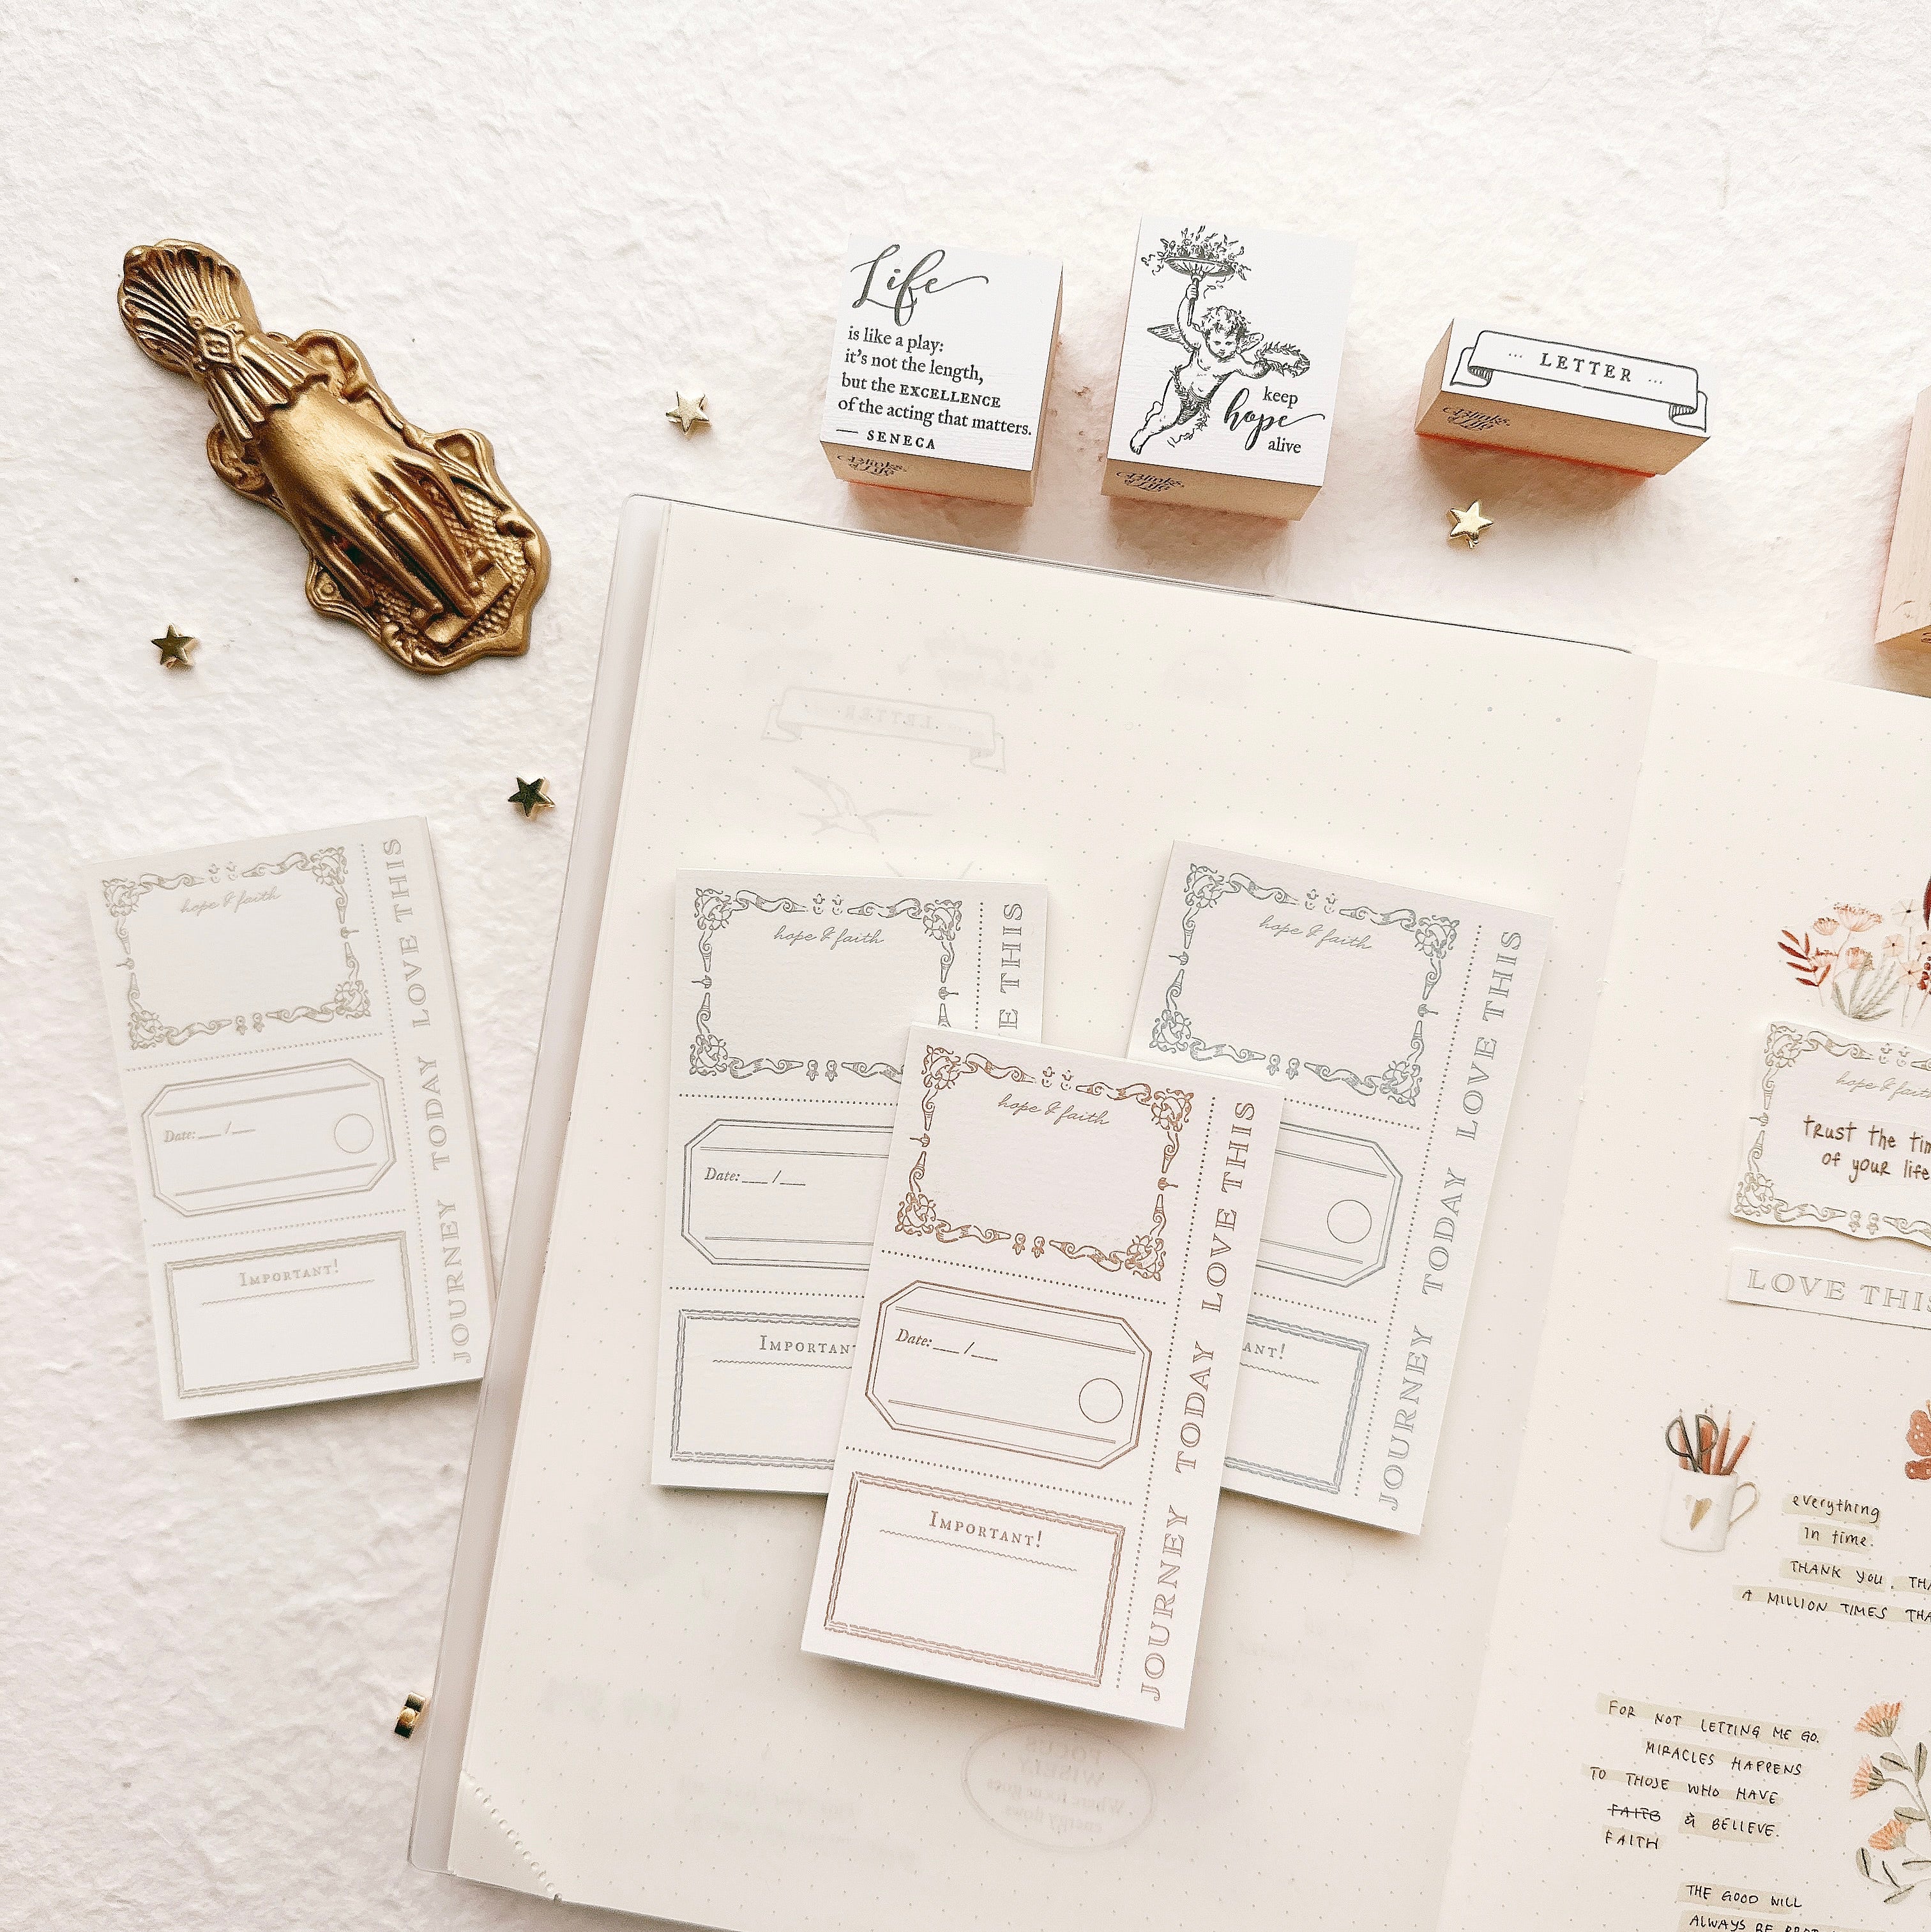 Life
is like a play:
it's not the length,
but the EXCELLENCE
of the acting that matters.
— SENECA
Blinks of Life
keep
hope
alive
Blinks of Life
··· LETTER ···
Blinks of Life
LETTER
hope & faith
Date:___/___
IMPORTANT!
JOURNEY TODAY LOVE THIS
hope & faith
Date:___/___
IMPORTANT
THIS
hope & faith
Date:___/___
IMPORTANT!
JOURNEY TODAY LOVE THIS
hope & faith
JOURNEY TODAY LOVE THIS
hope &
trust the
of your life
LOVE THIS
everything
in time.
THANK YOU.
A MILLION TIMES
FOR NOT LETTING ME GO.
MIRACLES HAPPENS
TO THOSE WHO HAVE
& BELIEVE.
FAITH
THE GOOD WILL
ALWAYS BE
FOCUS
WISELY